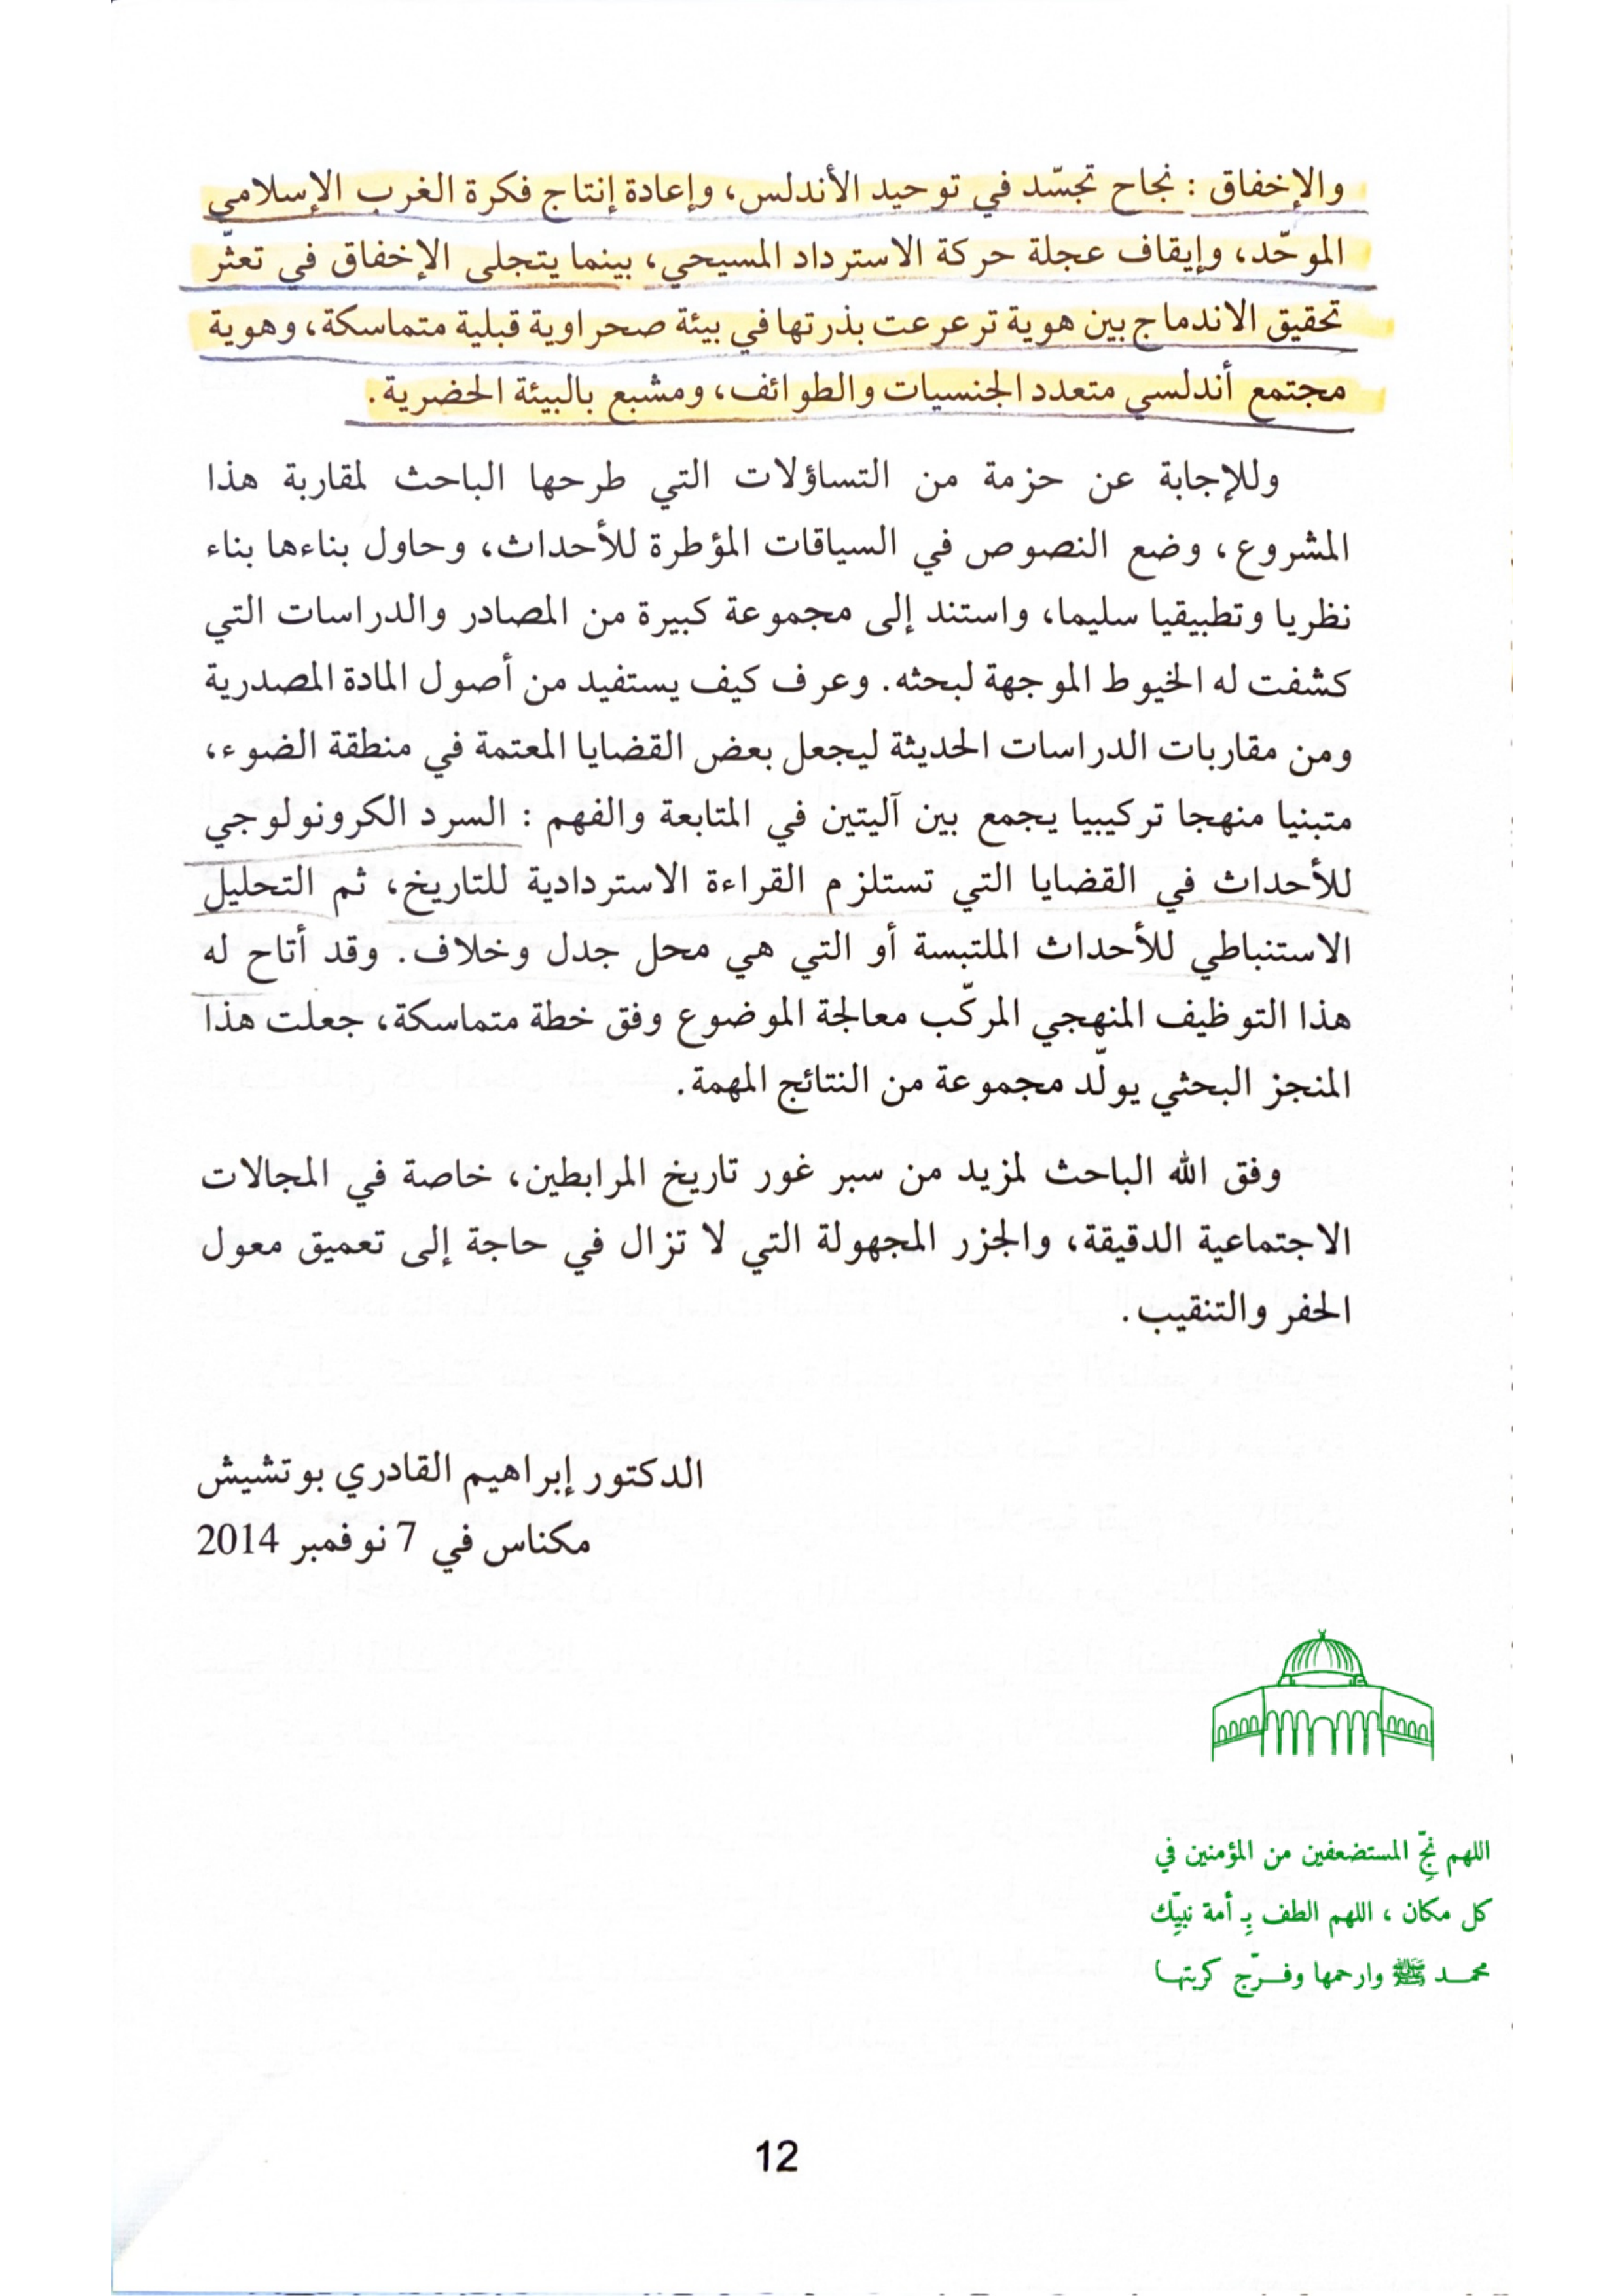 والإخفاق : نجاح تجسّد في توحيد الأندلس، وإعادة إنتاج فكرة الغرب الإسلامي
الموحّد، وإيقاف عجلة حركة الاسترداد المسيحي، بينما يتجلى الإخفاق في تعثّر
تحقيق الاندماج بين هوية ترعرعت بذرتها في بيئة صحراوية قبلية متماسكة، وهوية
مجتمع أندلسي متعدد الجنسيات والطوائف، ومشبع بالبيئة الحضرية.
وللإجابة عن حزمة من التساؤلات التي طرحها الباحث لمقاربة هذا
المشروع، وضع النصوص في السياقات المؤطرة للأحداث، وحاول بناءها بناء
نظريا وتطبيقيا سليما، واستند إلى مجموعة كبيرة من المصادر والدراسات التي
كشفت له الخيوط الموجهة لبحثه. وعرف كيف يستفيد من أصول المادة المصدرية
ومن مقاربات الدراسات الحديثة ليجعل بعض القضايا المعتمة في منطقة الضوء،
متبنيا منهجا تركيبيا يجمع بين آليتين في المتابعة والفهم : السرد الكرونولوجي
للأحداث في القضايا التي تستلزم القراءة الاستردادية للتاريخ، ثم التحليل
الاستنباطي للأحداث الملتبسة أو التي هي محل جدل وخلاف. وقد أتاح له
هذا التوظيف المنهجي المركّب معالجة الموضوع وفق خطة متماسكة، جعلت هذا
المنجز البحثي يولّد مجموعة من النتائج المهمة.
وفق الله الباحث لمزيد من سبر غور تاريخ المرابطين، خاصة في المجالات
الاجتماعية الدقيقة، والجزر المجهولة التي لا تزال في حاجة إلى تعميق معول
الحفر والتنقيب.
الدكتور إبراهيم القادري بوتشيش
مكناس في 7 نوفمبر 2014
اللهم نجِّ المستضعفين من المؤمنين في
كل مكان ، اللهم الطف بِـ أمة نبيِّك
محمـد ﷺ وارحمها وفـرّج كربتها
12